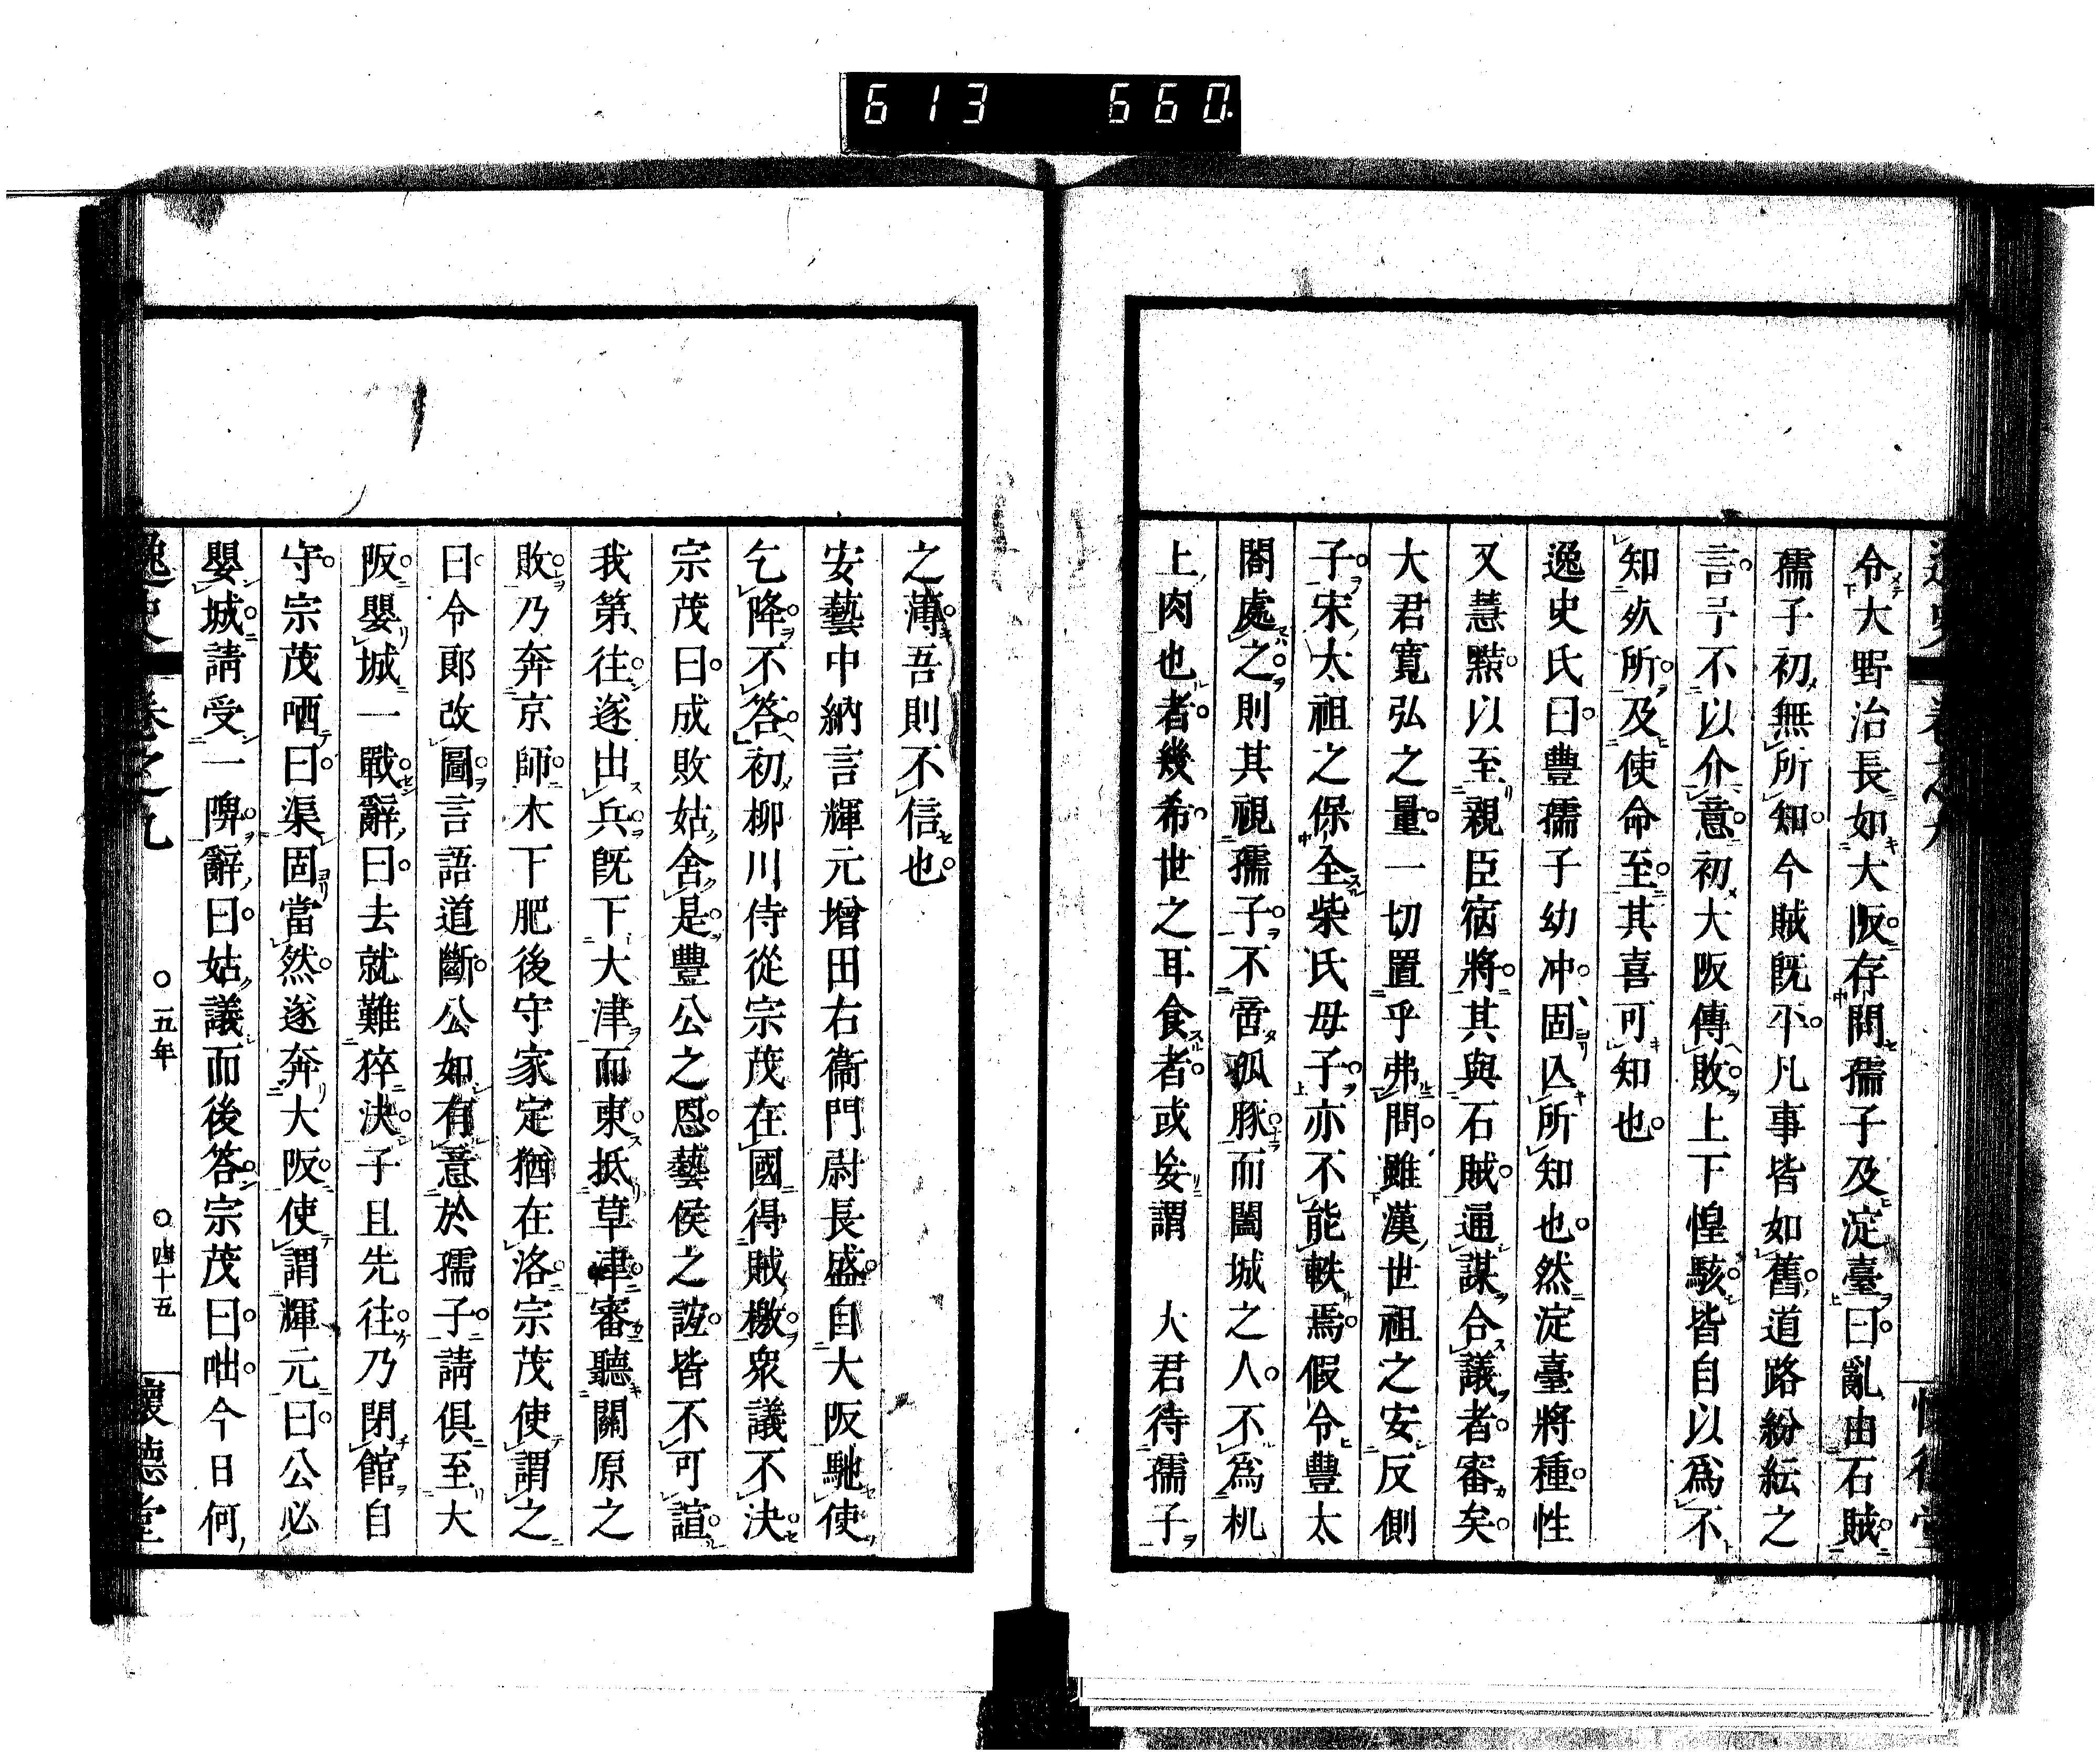 613 660
逸史 卷之九 懷德堂
令大野治長如大阪存問孺子及淀臺曰亂由石賊
孺子初無所知今賊既平凡事皆如舊道路紛紜之
言予不以介意初大阪傳敗上下惶駭皆自以爲不
知死所及使命至其喜可知也
逸史氏曰豐孺子幼冲固亾所知也然淀臺將種性
又慧黠以至親臣宿將其與石賊通謀合議者審矣
大君寬弘之量一切置乎弗問雖漢世祖之安反側
子宋太祖之保全柴氏母子亦不能軼焉假令豐太
閤處之則其視孺子不啻孤豚而闔城之人不爲机
上肉也者幾希世之耳食者或妄謂 大君待孺子
之薄吾則不信也
安藝中納言輝元增田右衞門尉長盛自大阪馳使
乞降不答初柳川侍從宗茂在國得賊檄衆議不決
宗茂曰成敗姑舍是豐公之恩藝侯之誼皆不可諠
我第往遂出兵既下大津而東抵草津審聽關原之
敗乃奔京師木下肥後守家定猶在洛宗茂使謂之
曰令郞改圖言語道斷公如有意於孺子請俱至大
阪嬰城一戰辭曰去就難猝決子且先往乃閉館自
守宗茂哂曰渠固當然遂奔大阪使謂輝元曰公必
嬰城請受一陴辭曰姑議而後答宗茂曰咄今日何
逸史 卷之九 〇五年 〇四十五 懷德堂